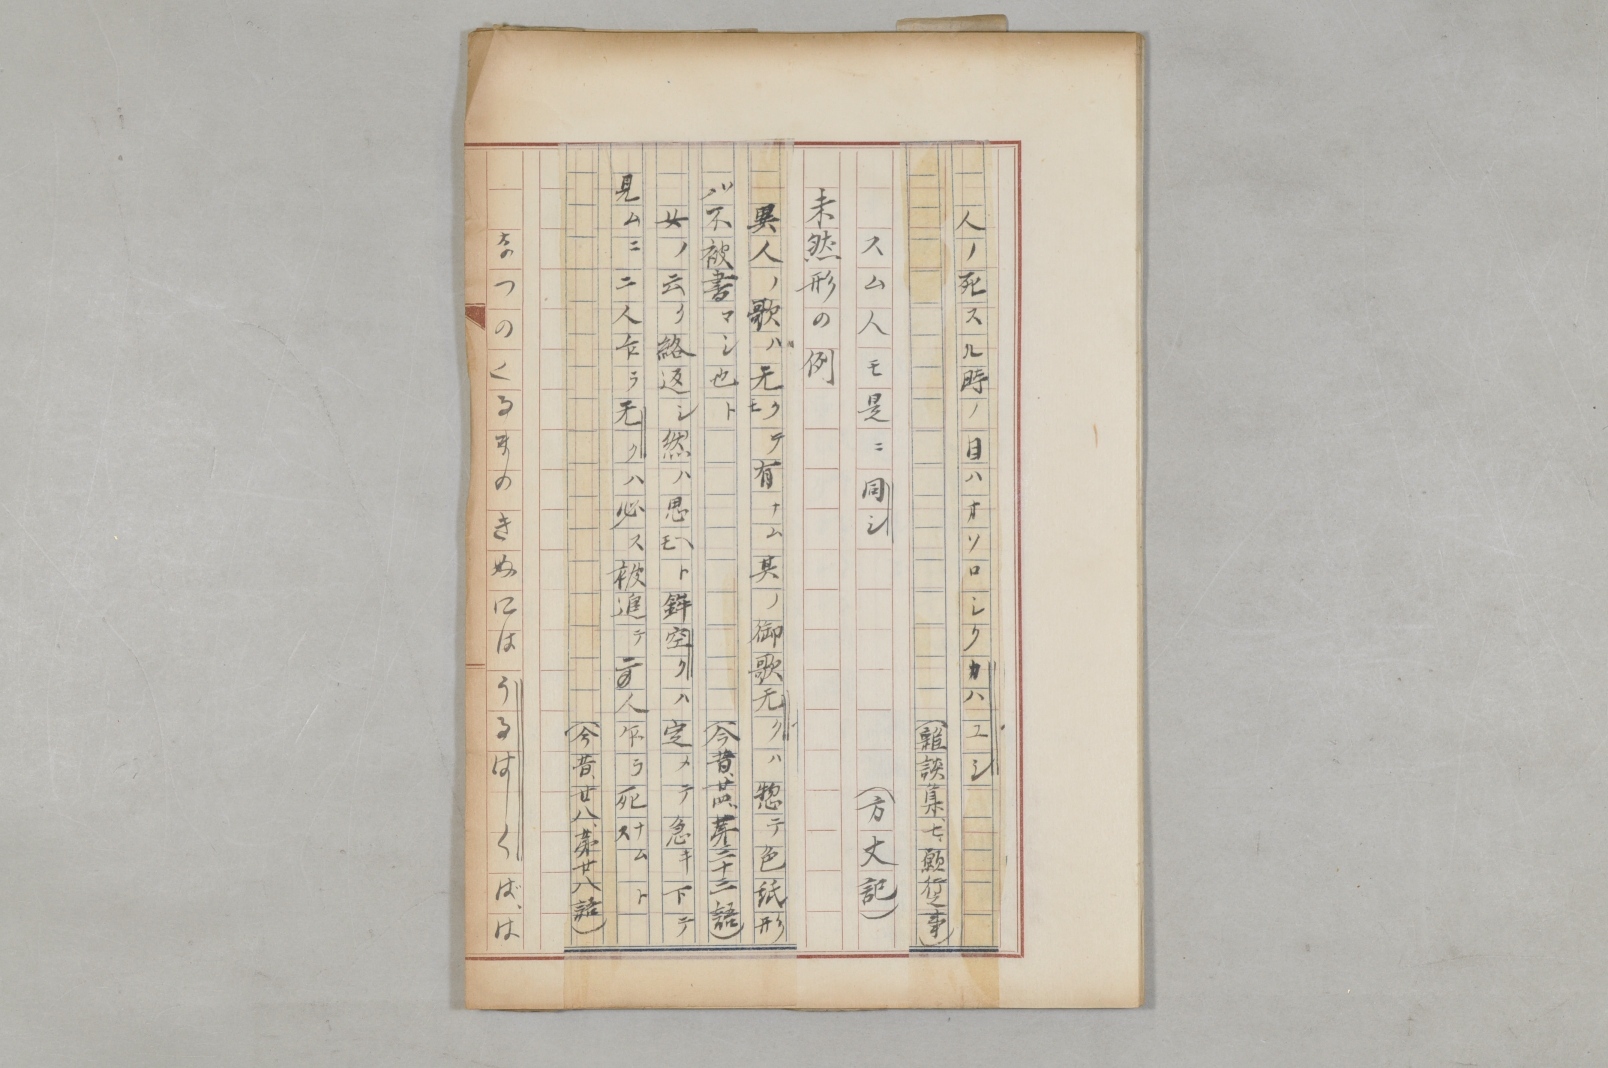 人ノ死スル時ノ目ハオソロシクカハユシ
(雜談集、七、願行之事)
スム人モ是ニ同シ
(方丈記)
未然形の例
異人ノ歌ハ无クテモ有ナム其ノ御歌无クハ惣テ色紙形
ハ不被書マシ也ト
(今昔、廿四、第三十三語)
女ノ云ク絡返シ然ハ思ヘトモ鉢空クハ定メテ急キ下テ
見ムニ二人乍ラ无クハ必ス被進テ二人乍ラ死ナムスト
(今昔、廿八、第廿八語)
なつのくるまのきぬにはうるはしくば、は